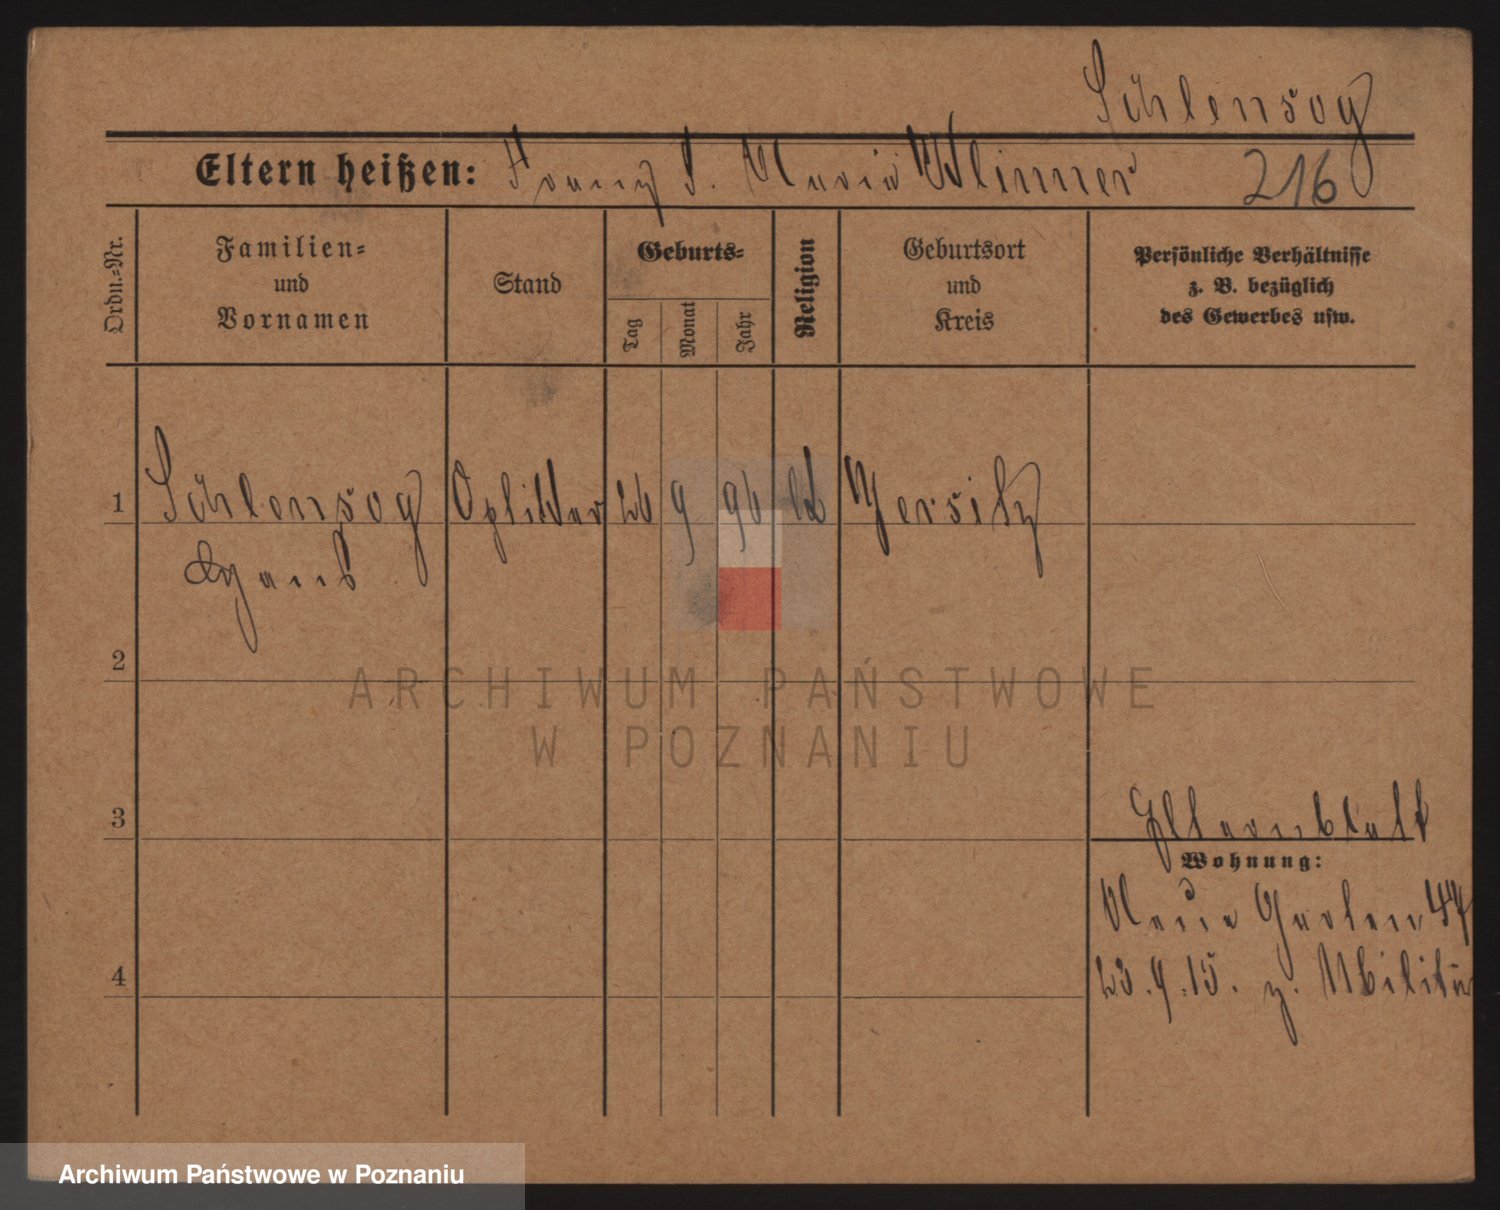 Schlensog
Eltern heißen: Franz S. Maria Klinner 216
Ordn.-Nr.
Familien-
und
Vornamen
Stand
Geburts-
Tag
Monat
Jahr
Religion
Geburtsort
und
Kreis
Persönliche Verhältnisse
z. B. bezüglich
des Gewerbes usw.
1 Schlensog 26 9 96 Jersitz
2
ARCHIWUM PAŃSTWOWE
W POZNANIU
3 Elternblatt
Wohnung:
Neue Garten
4 23.9.15. z. Militär
Archiwum Państwowe w Poznaniu